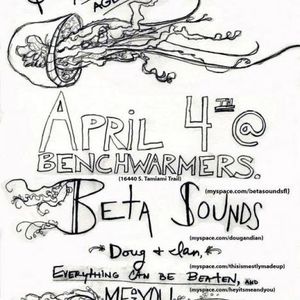 APRIL 4TH @
BENCHWARMERS.
(16440 S. Tamiami Trail)
(myspace.com/betasoundsfl)
BETA SOUNDS
(myspace.com/dougandian)
Doug + Ian,
(myspace.com/thisismostlymadeup)
EVERYTHING CAN BE BEATEN, AND
(myspace.com/heyitsmeandyou)